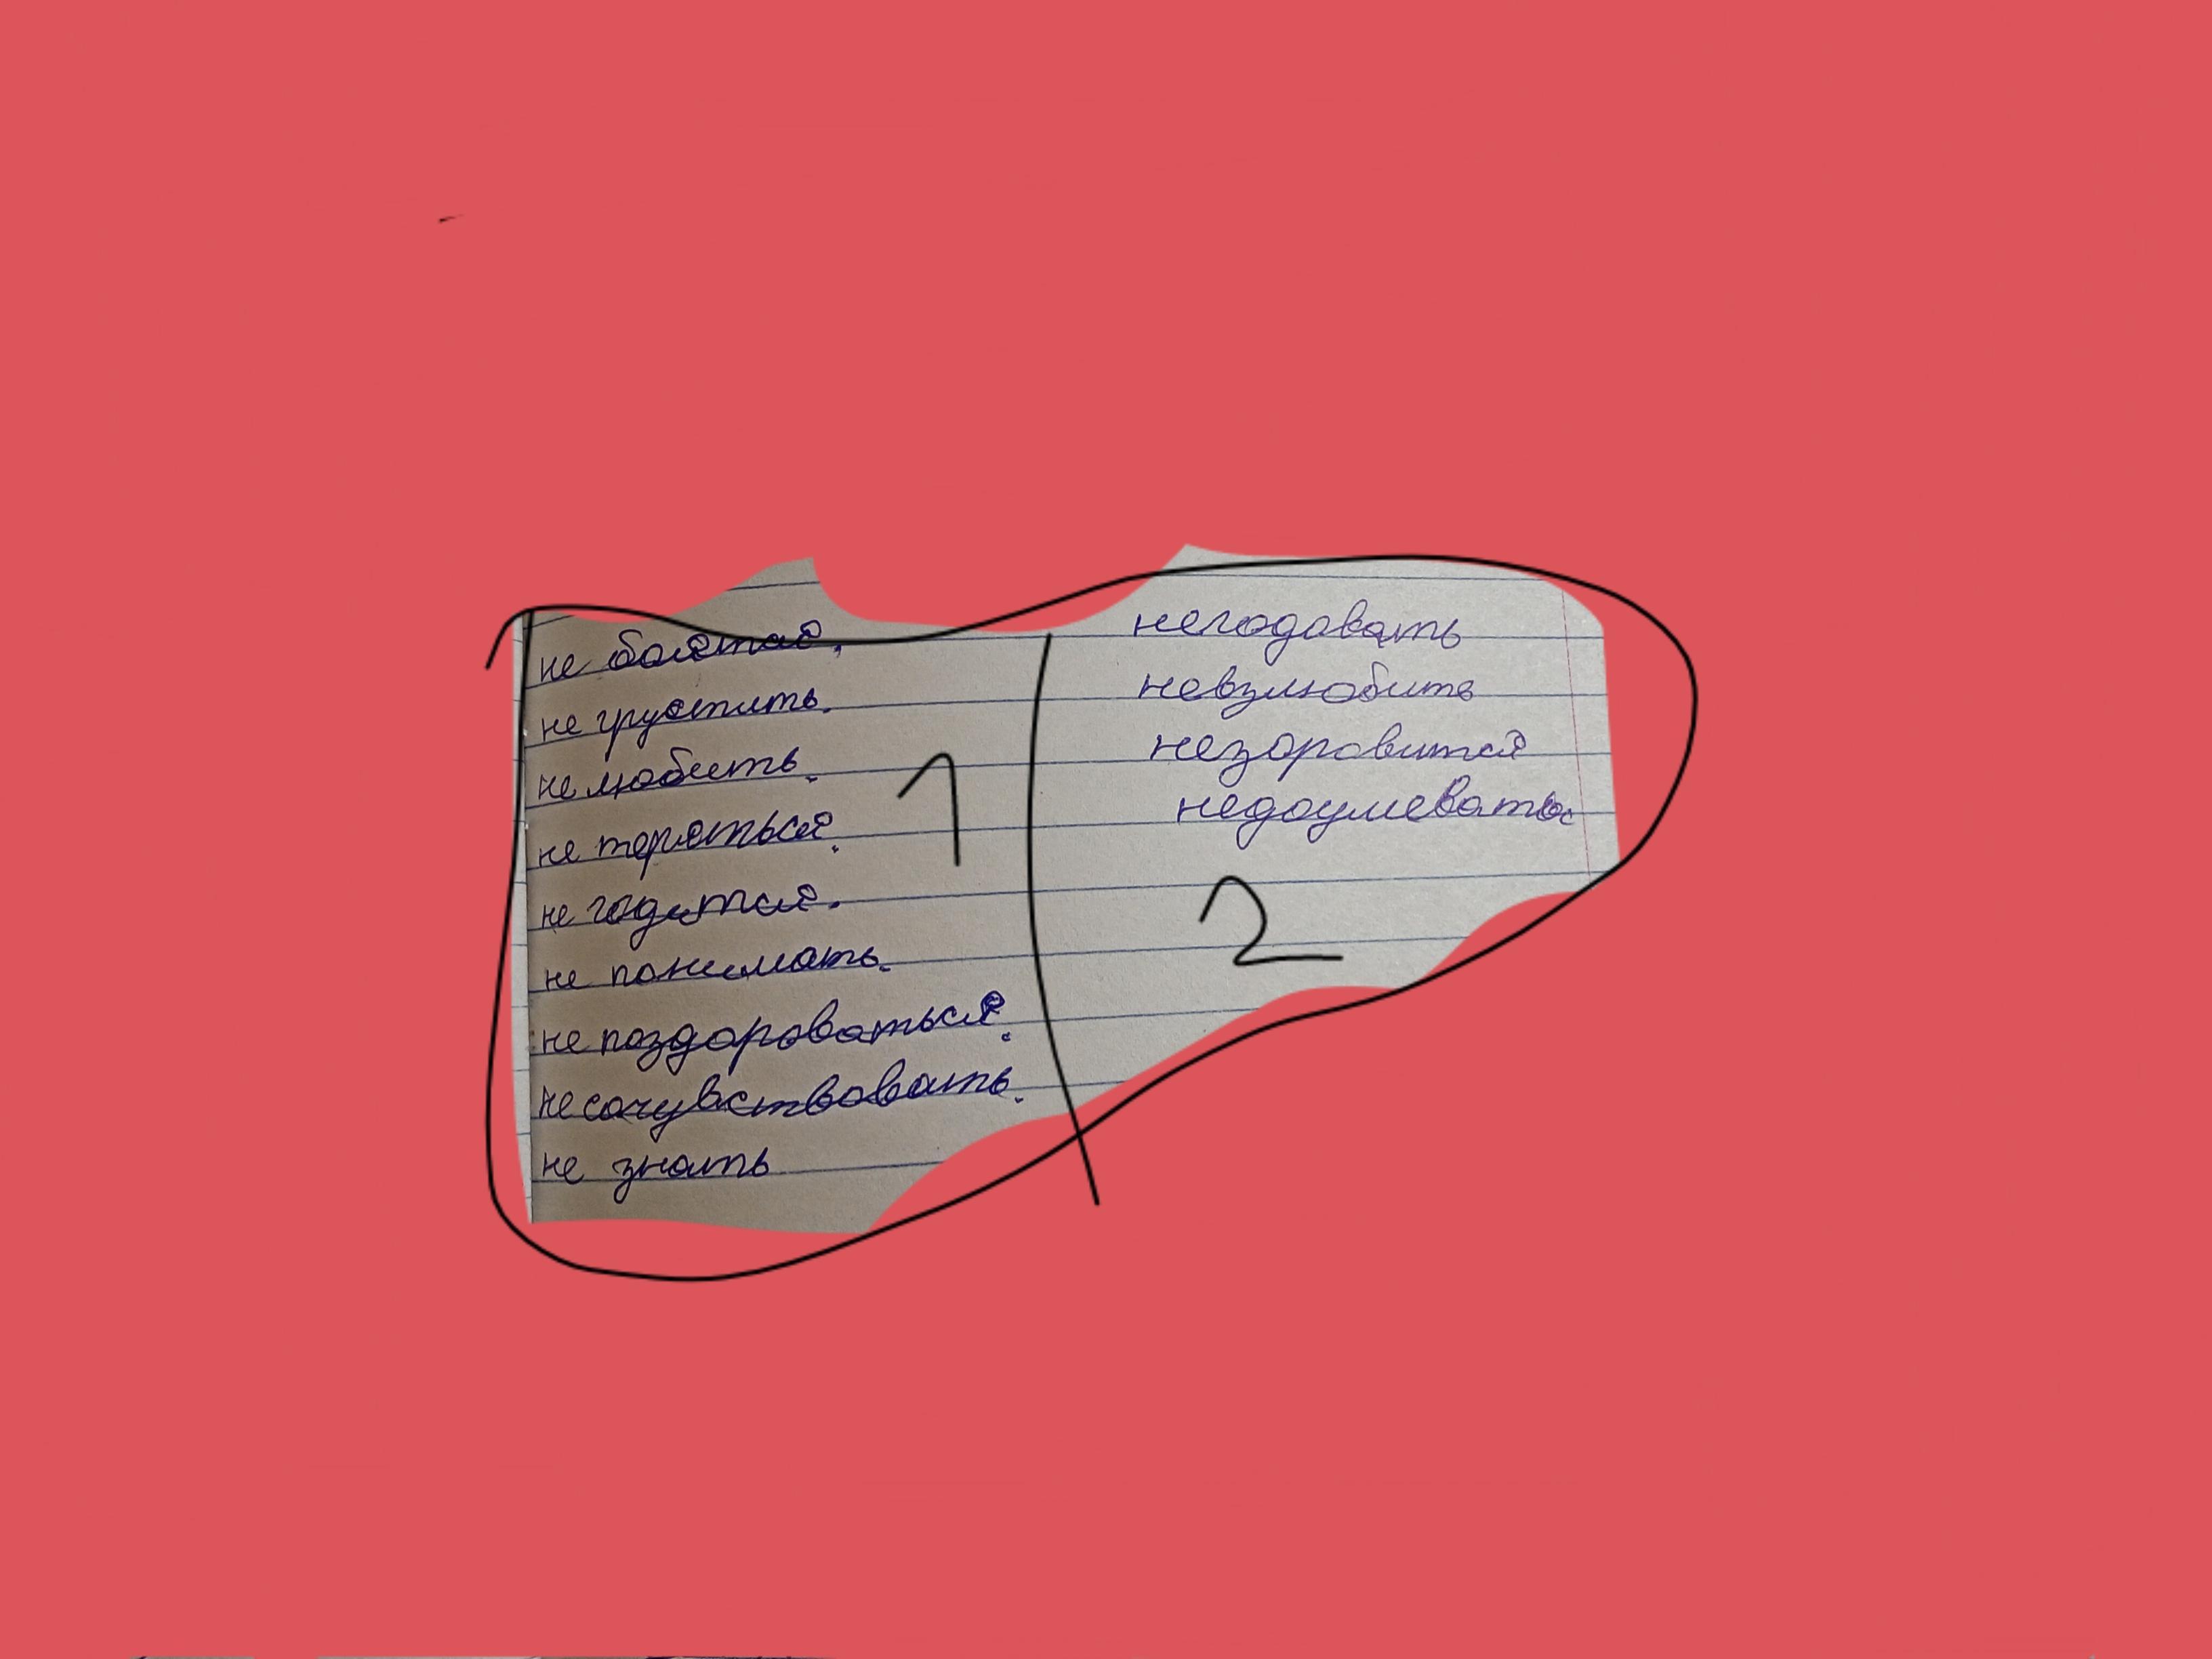 не боятся.
не грустить.
не любить.
не теряться.
не годится.
не понимать.
не поздороваться.
не сочувствовать.
не знать
1
негодавать
невзлюбить
нездоровится
недоумевать
2